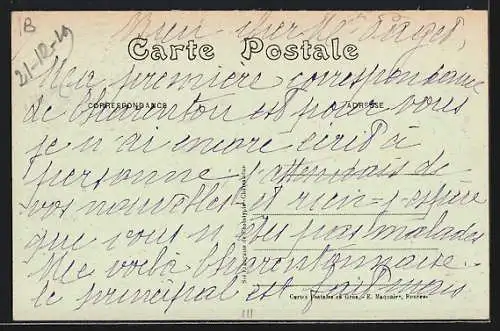 B
21-12-19
Bien chère Mme Verget,
Carte Postale
Ma première correspondance
CORRESPONDANCE
ADRESSE
de Charenton est pour vous
je n'ai encore écrit à
personne j'attendais de
vos nouvelles et rien j'espère
que vous n'êtes pas malades
Me voilà Charentonnaise.
le principal est fait mais
Cartes Postales en Gros. - E. Maquaire,